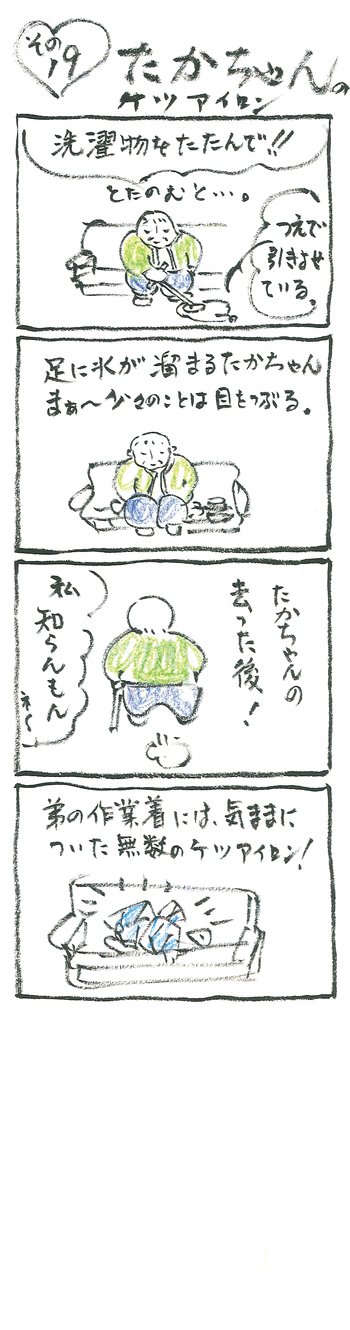 その
19
たかちゃんの
ケツアイロン
洗濯物をたたんで!!
とたのむと…。
つえで
引きよせ
ている。
足に水が溜まるたかちゃん
まぁ〜少々のことは目をつぶる。
たかちゃんの
去った後!
私
知らんもん
ネ〜
弟の作業着には、気ままに
ついた無数のケツアイロン!